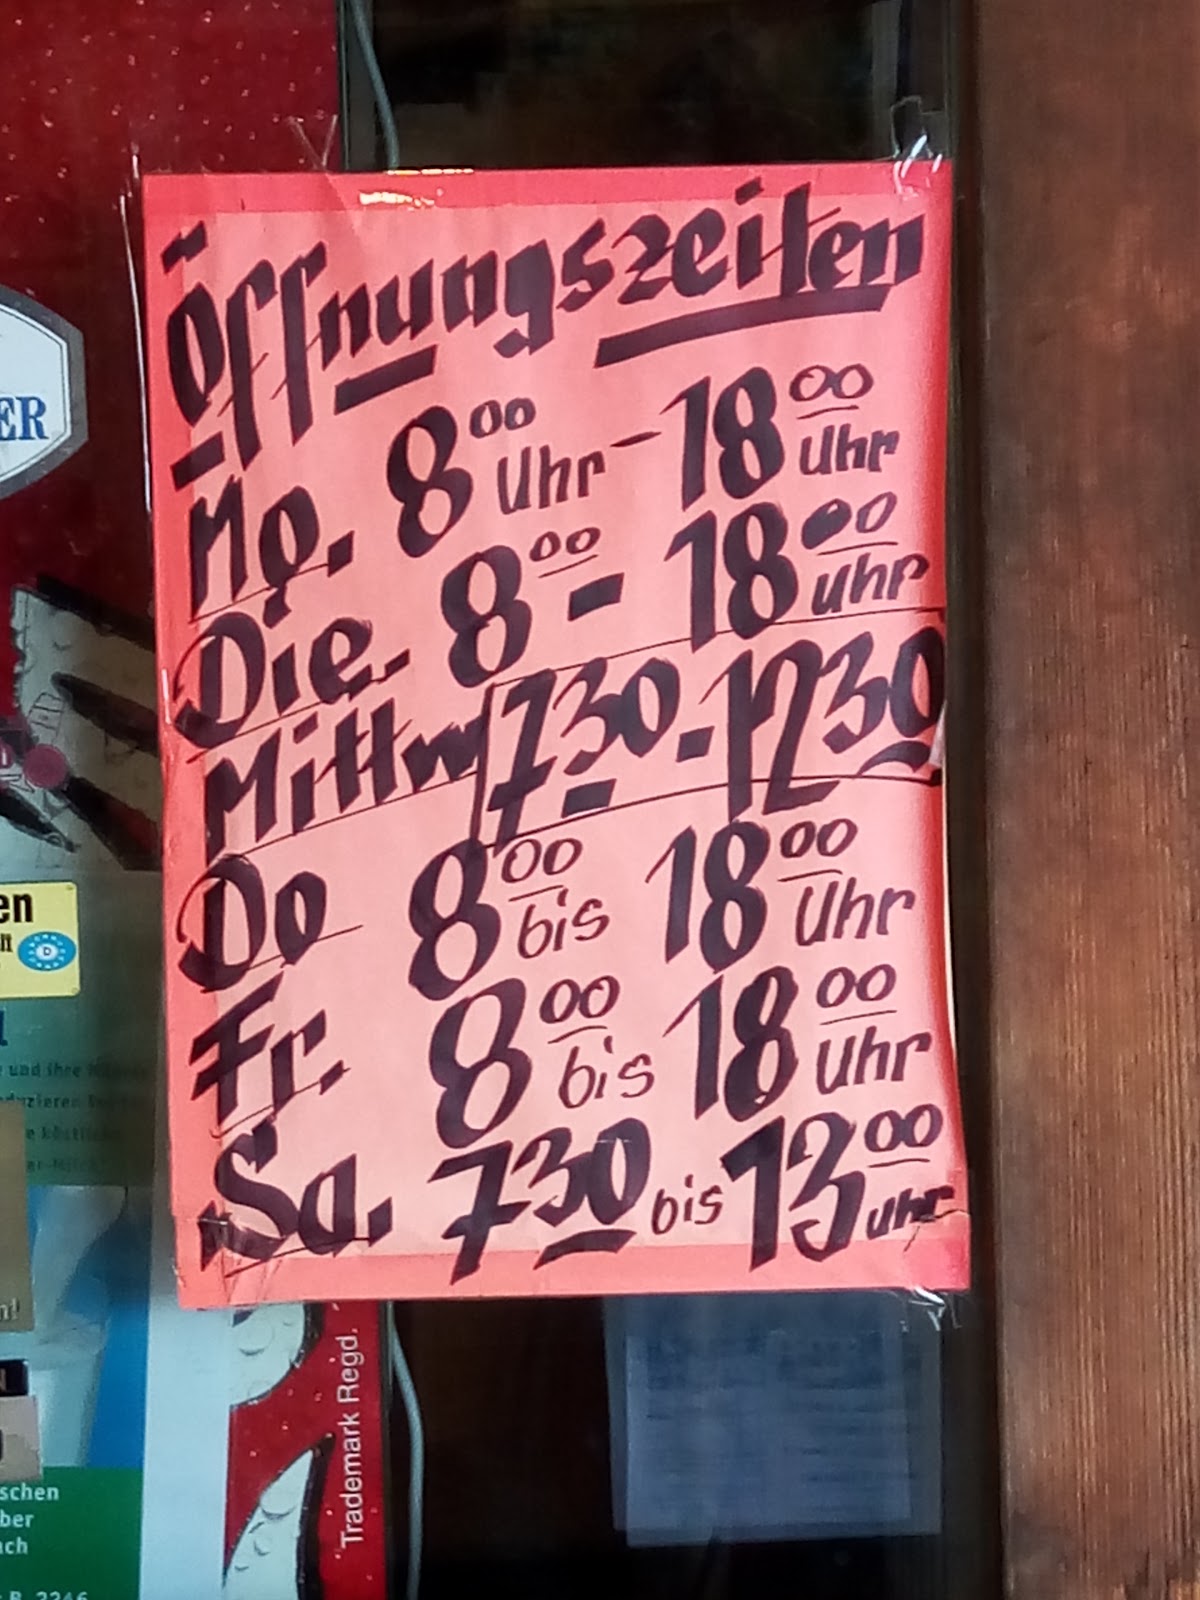 Öffnungszeiten
Mo. 8⁰⁰ Uhr - 18⁰⁰ Uhr
Die. 8⁰⁰ - 18⁰⁰ Uhr
Mittw 7 30 - 12 30
Do 8⁰⁰ bis 18⁰⁰ Uhr
Fr. 8⁰⁰ bis 18⁰⁰ Uhr
Sa. 7 30 bis 13⁰⁰ Uhr
ER
en
D
und ihre
schen
ber
ach
Trademark Regd.